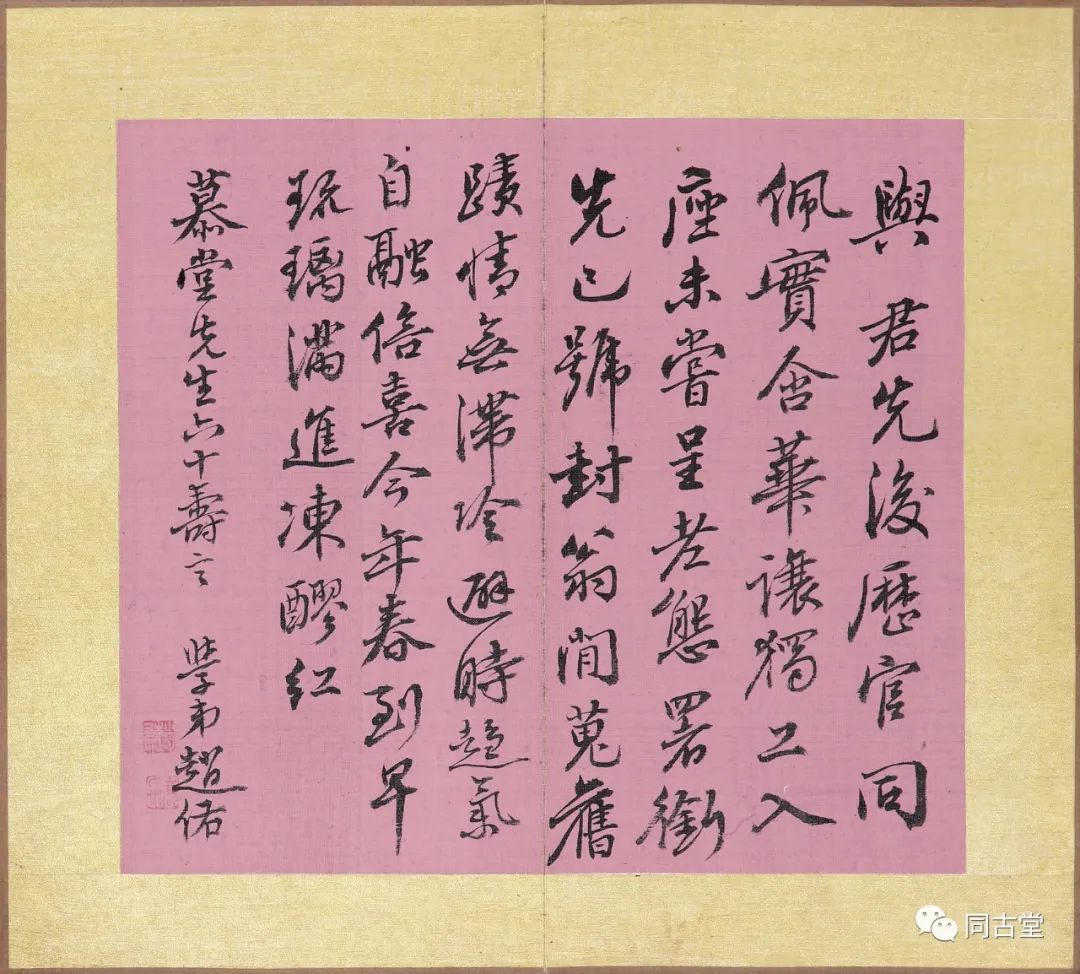 與 君先後歷官同
佩實含華讓獨工入
座未嘗呈老態署銜
先已號封翁閒蒐舊
蹟情無滯冷避時趨氣
自融倍喜今年春到早
琉璃滿進凍醪紅
慕堂先生六十壽言 學弟趙佑
同古堂